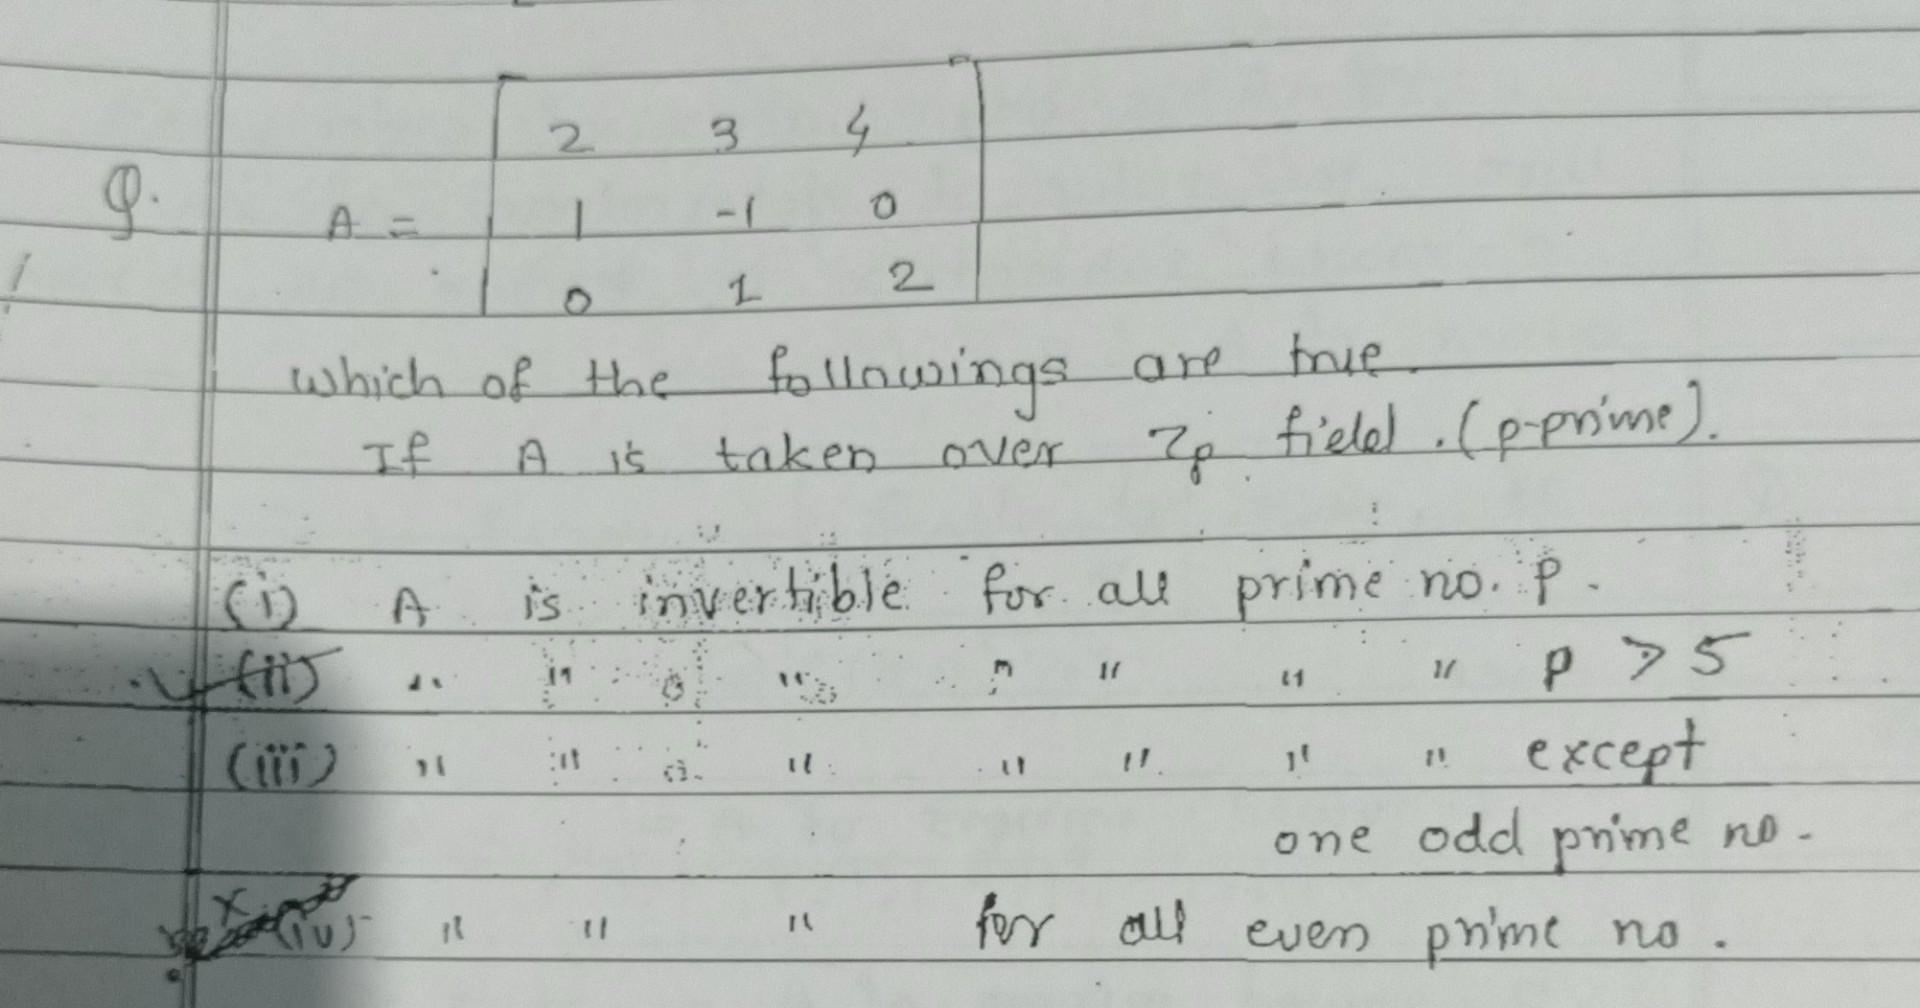 2 3 4
Q. A = 1 -1 0
0 1 2
which of the followings are true.
If A is taken over Zp field. (p-prime).
(i) A is invertible for all prime no. P.
(ii) " " " " " " " P > 5
(iii) " " " " " " " except
one odd prime no.
x (iv) " " " for all even prime no.